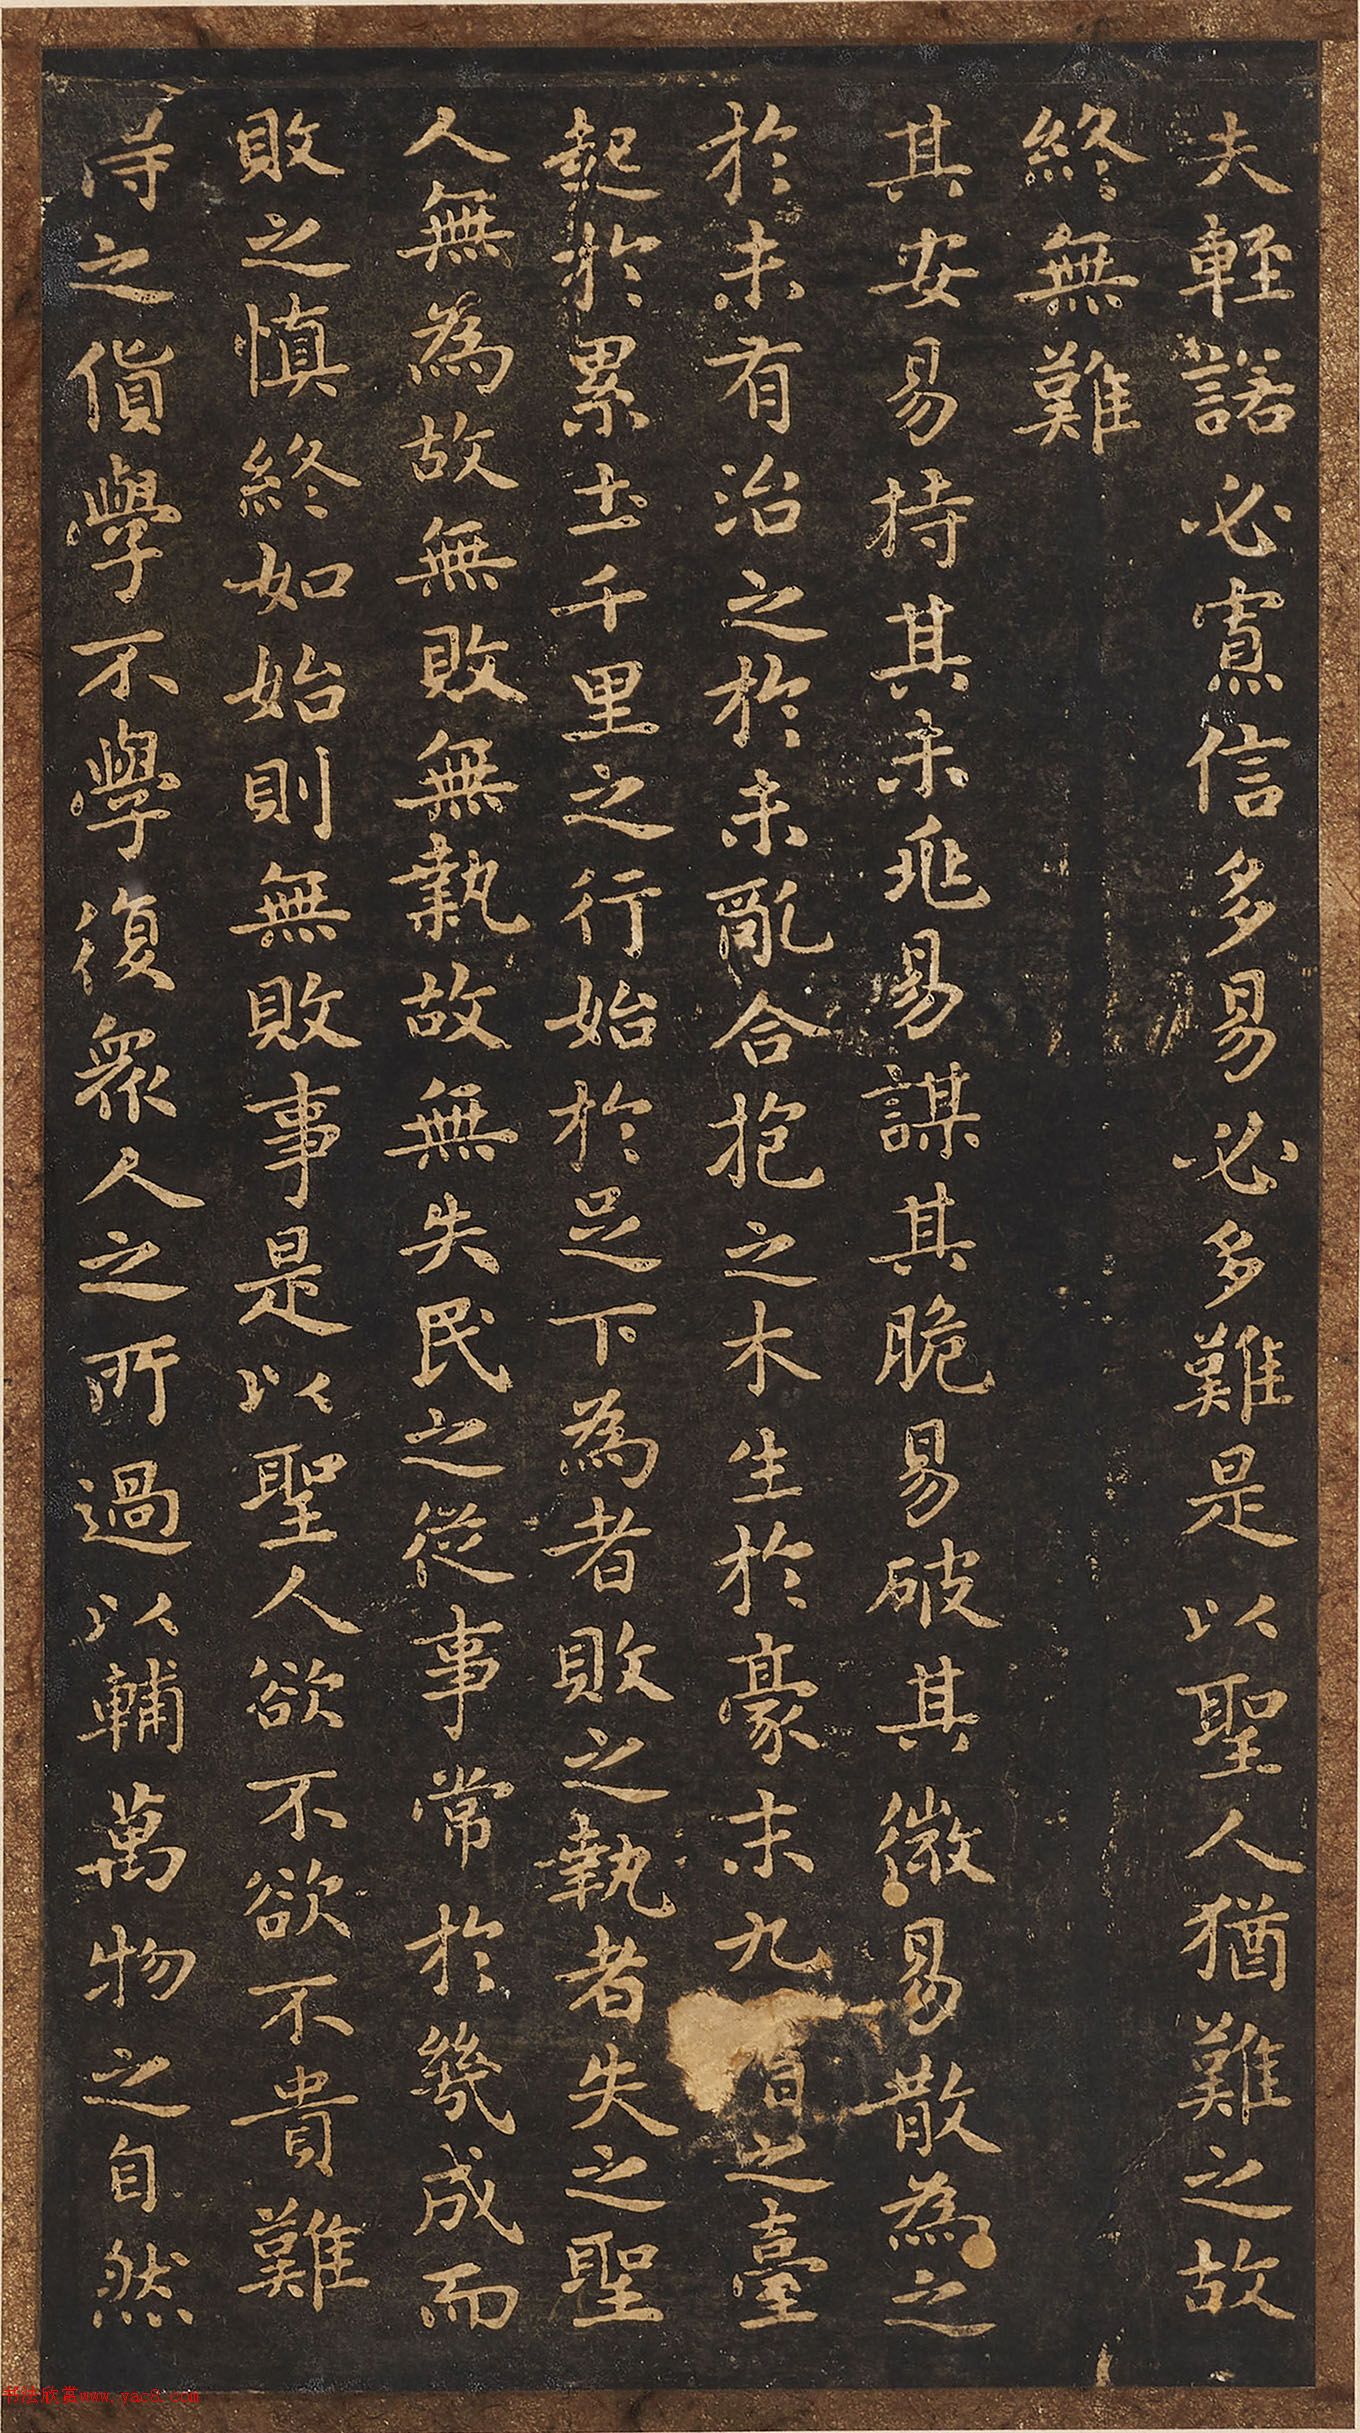 夫輕諾必寡信多易必多難是以聖人猶難之故
終無難
其安易持其未兆易謀其脆易破其微易散為之
於未有治之於未亂合抱之木生於豪末九之臺
起於累土千里之行始於足下為者敗之執者失之聖
人無為故無敗無執故無失民之從事常於幾成而
敗之慎終如始則無敗事是以聖人欲不欲不貴難
得之貨學不學復眾人之所過以輔萬物之自然
书法欣赏www.yac8.com